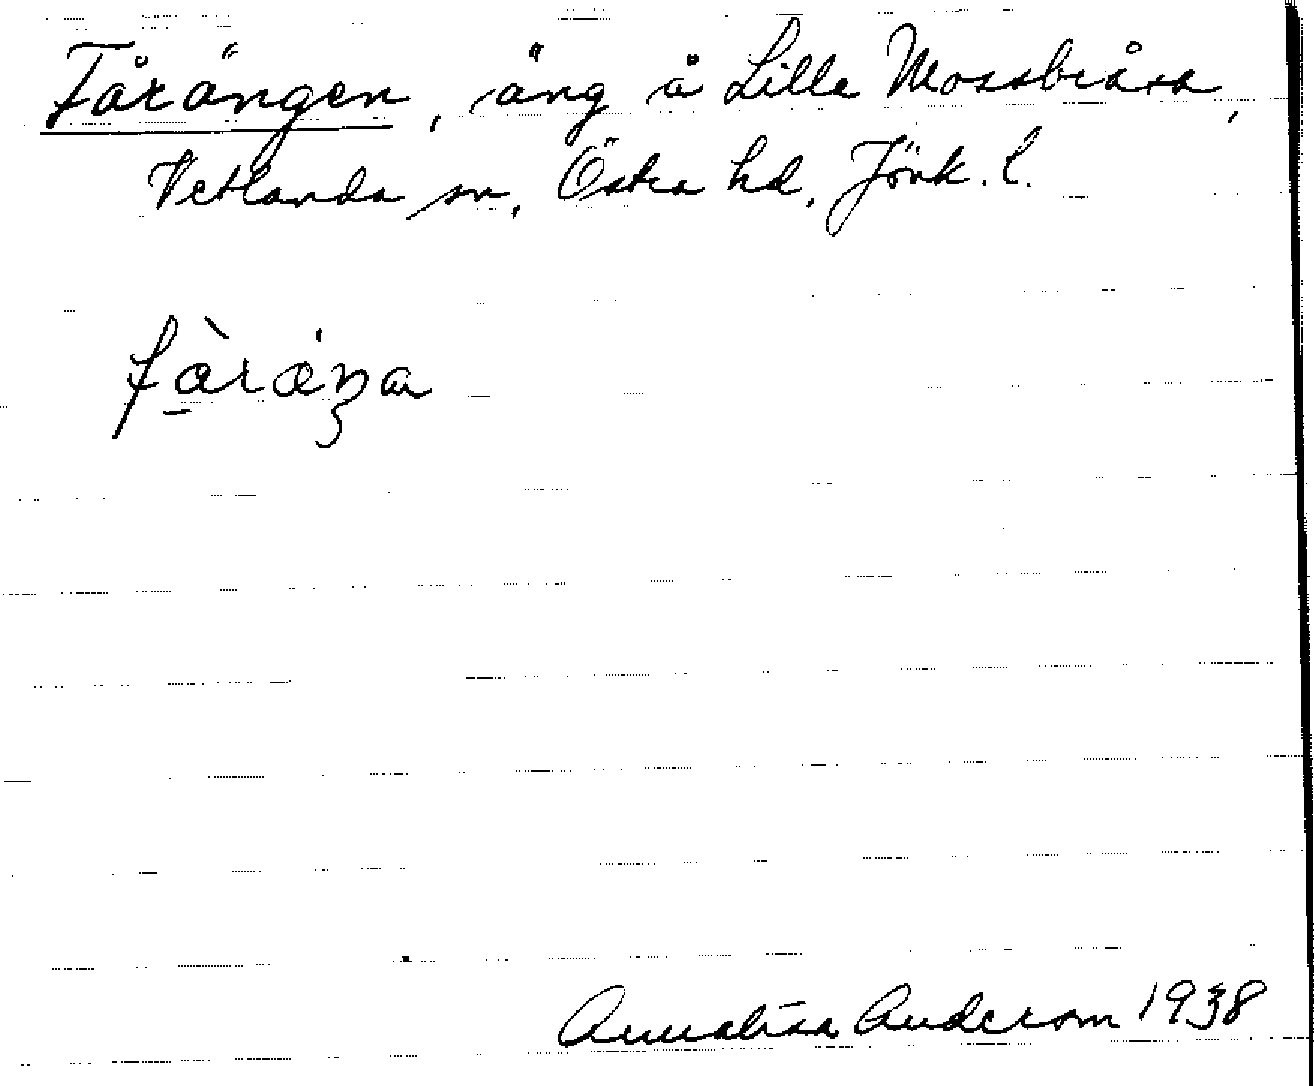 Fårängen, äng å Lille Mossbråra,
Vetlanda sn, Östra hd, Jönk. l.
Annalisa Anderson 1938